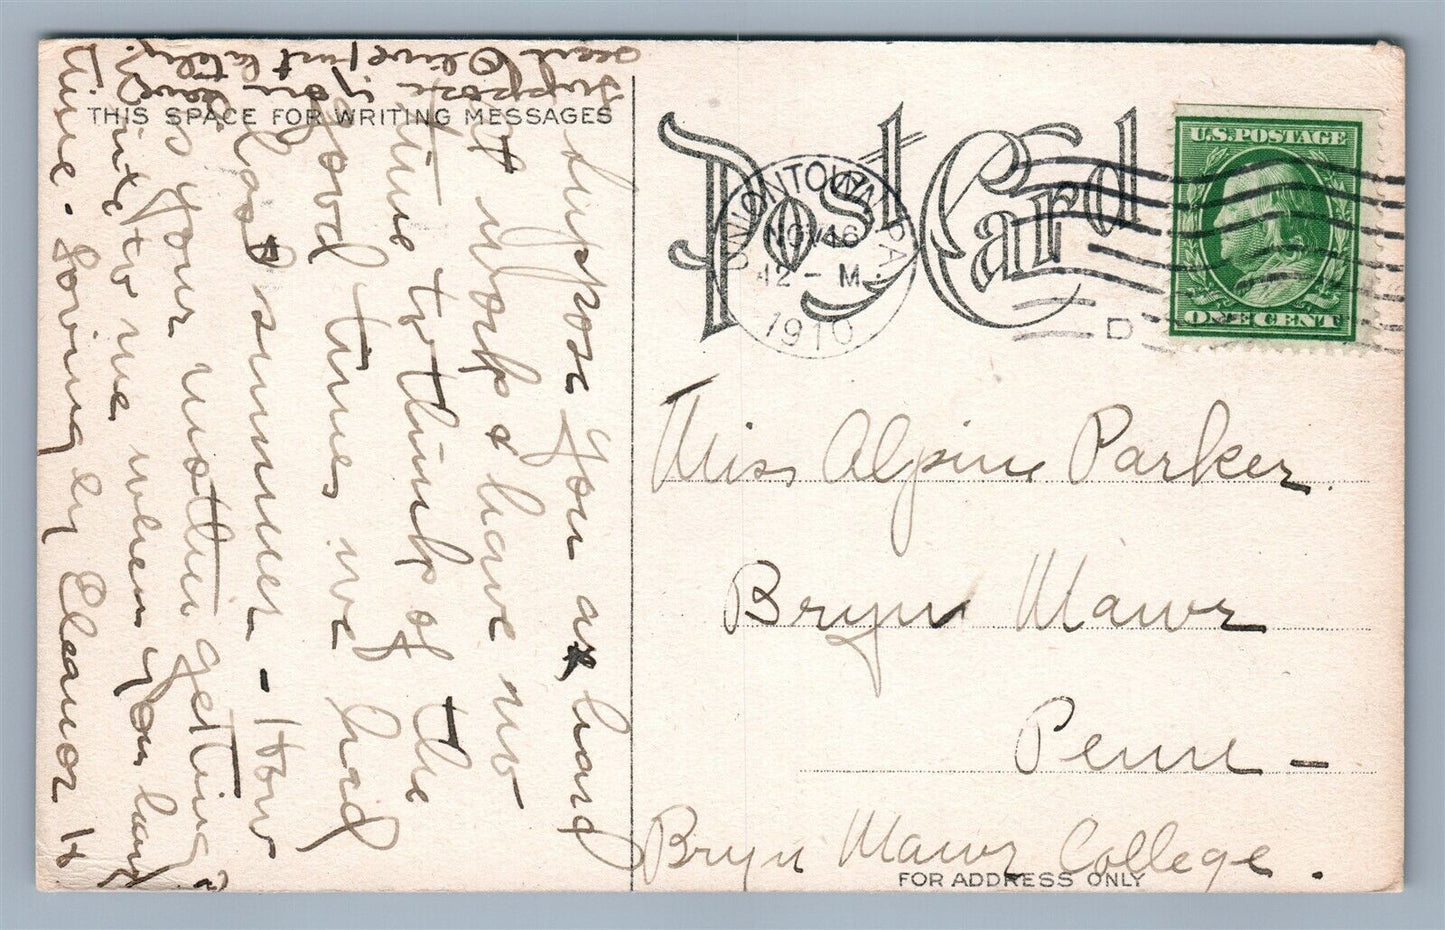 THIS SPACE FOR WRITING MESSAGES
Post Card
UNIONTOWN PA.
NOV 16
12 - M
1910
D
U.S. POSTAGE
ONE CENT
Suppose you are hard
at work & have no
time to think of the
good times we had
last summer - How
is your mother getting ?
write to me when you have
time. Loving ly Eleanor H
suppose you have
seen Olive lately?
Miss Alpine Parker.
Bryn Mawr
Penn -
Bryn Mawr College.
FOR ADDRESS ONLY